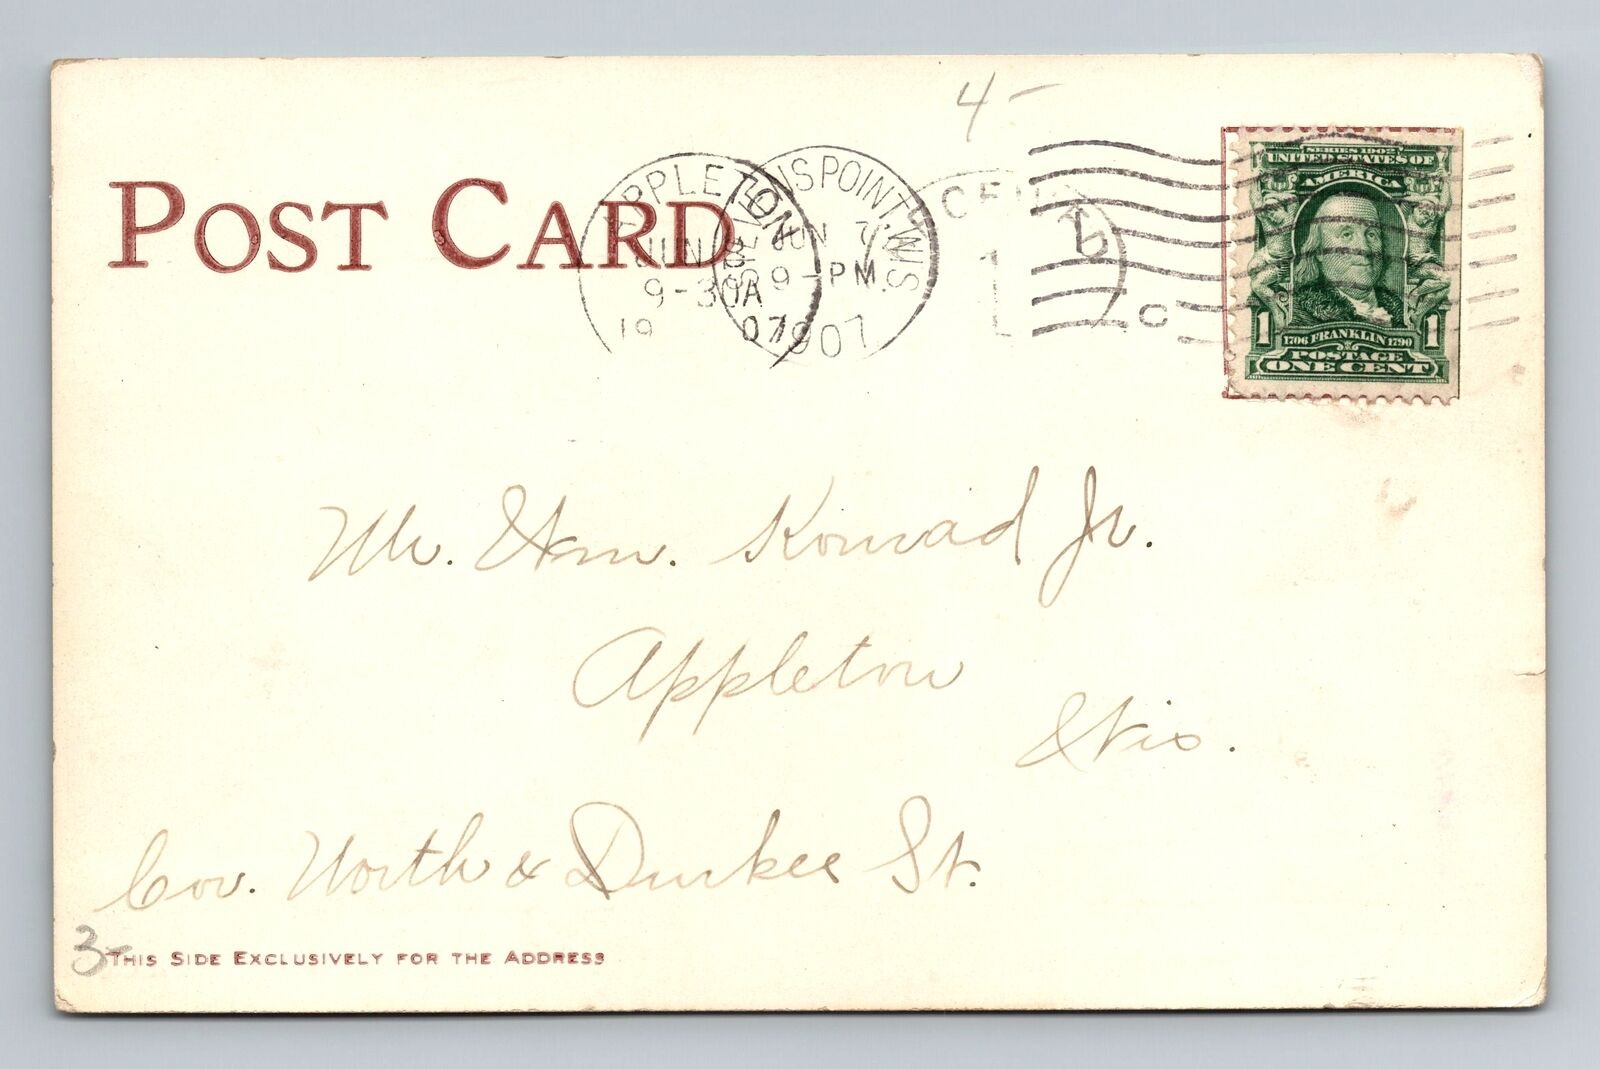 4-
POST CARD
APPLETON
JUN
9-30A
19 07
STEVENS POINT, WIS.
JUN 7
9-PM.
1907
RECEIVED
1
SERIES 1902
UNITED STATES OF
AMERICA
1 1706 FRANKLIN 1790 1
POSTAGE
ONE CENT
Mr. Wm. Konrad Jr.
Appleton
Wis.
Cor. North & Durkee St.
3-
THIS SIDE EXCLUSIVELY FOR THE ADDRESS